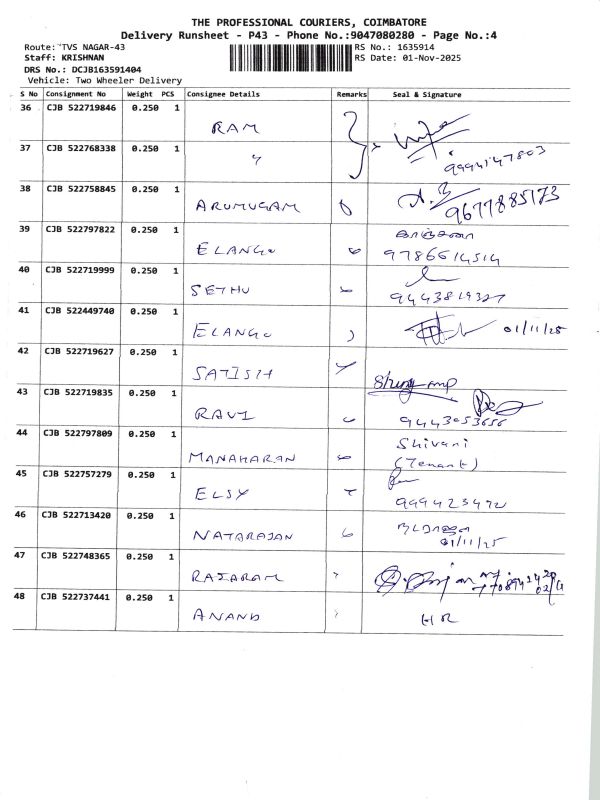 THE PROFESSIONAL COURIERS, COIMBATORE
Delivery Runsheet - P43 - Phone No.:9047080280 - Page No.:4
Route: TVS NAGAR-43 RS No.: 1635914
Staff: KRISHNAN RS Date: 01-Nov-2025
DRS No.: DCJB163591404
Vehicle: Two Wheeler Delivery
S No Consignment No Weight PCS Consignee Details Remarks Seal & Signature
36 CJB 522719846 0.250 1 RAM
37 CJB 522768338 0.250 1 " 9994147803
38 CJB 522758845 0.250 1 ARUMUGAM 9677885173
39 CJB 522797822 0.250 1 ELANGO 9786614514
40 CJB 522719999 0.250 1 SETHU 9443819327
41 CJB 522449740 0.250 1 ELANGO 01/11/25
42 CJB 522719627 0.250 1 SATISH
43 CJB 522719835 0.250 1 RAVI 9443053656
44 CJB 522797809 0.250 1 MANAHARAN Shivani
(Tenant)
45 CJB 522757279 0.250 1 ELSY 999423492
46 CJB 522713420 0.250 1 NATARAJAN
01/11/25
47 CJB 522748365 0.250 1 RAJARAM
48 CJB 522737441 0.250 1 ANAND HR